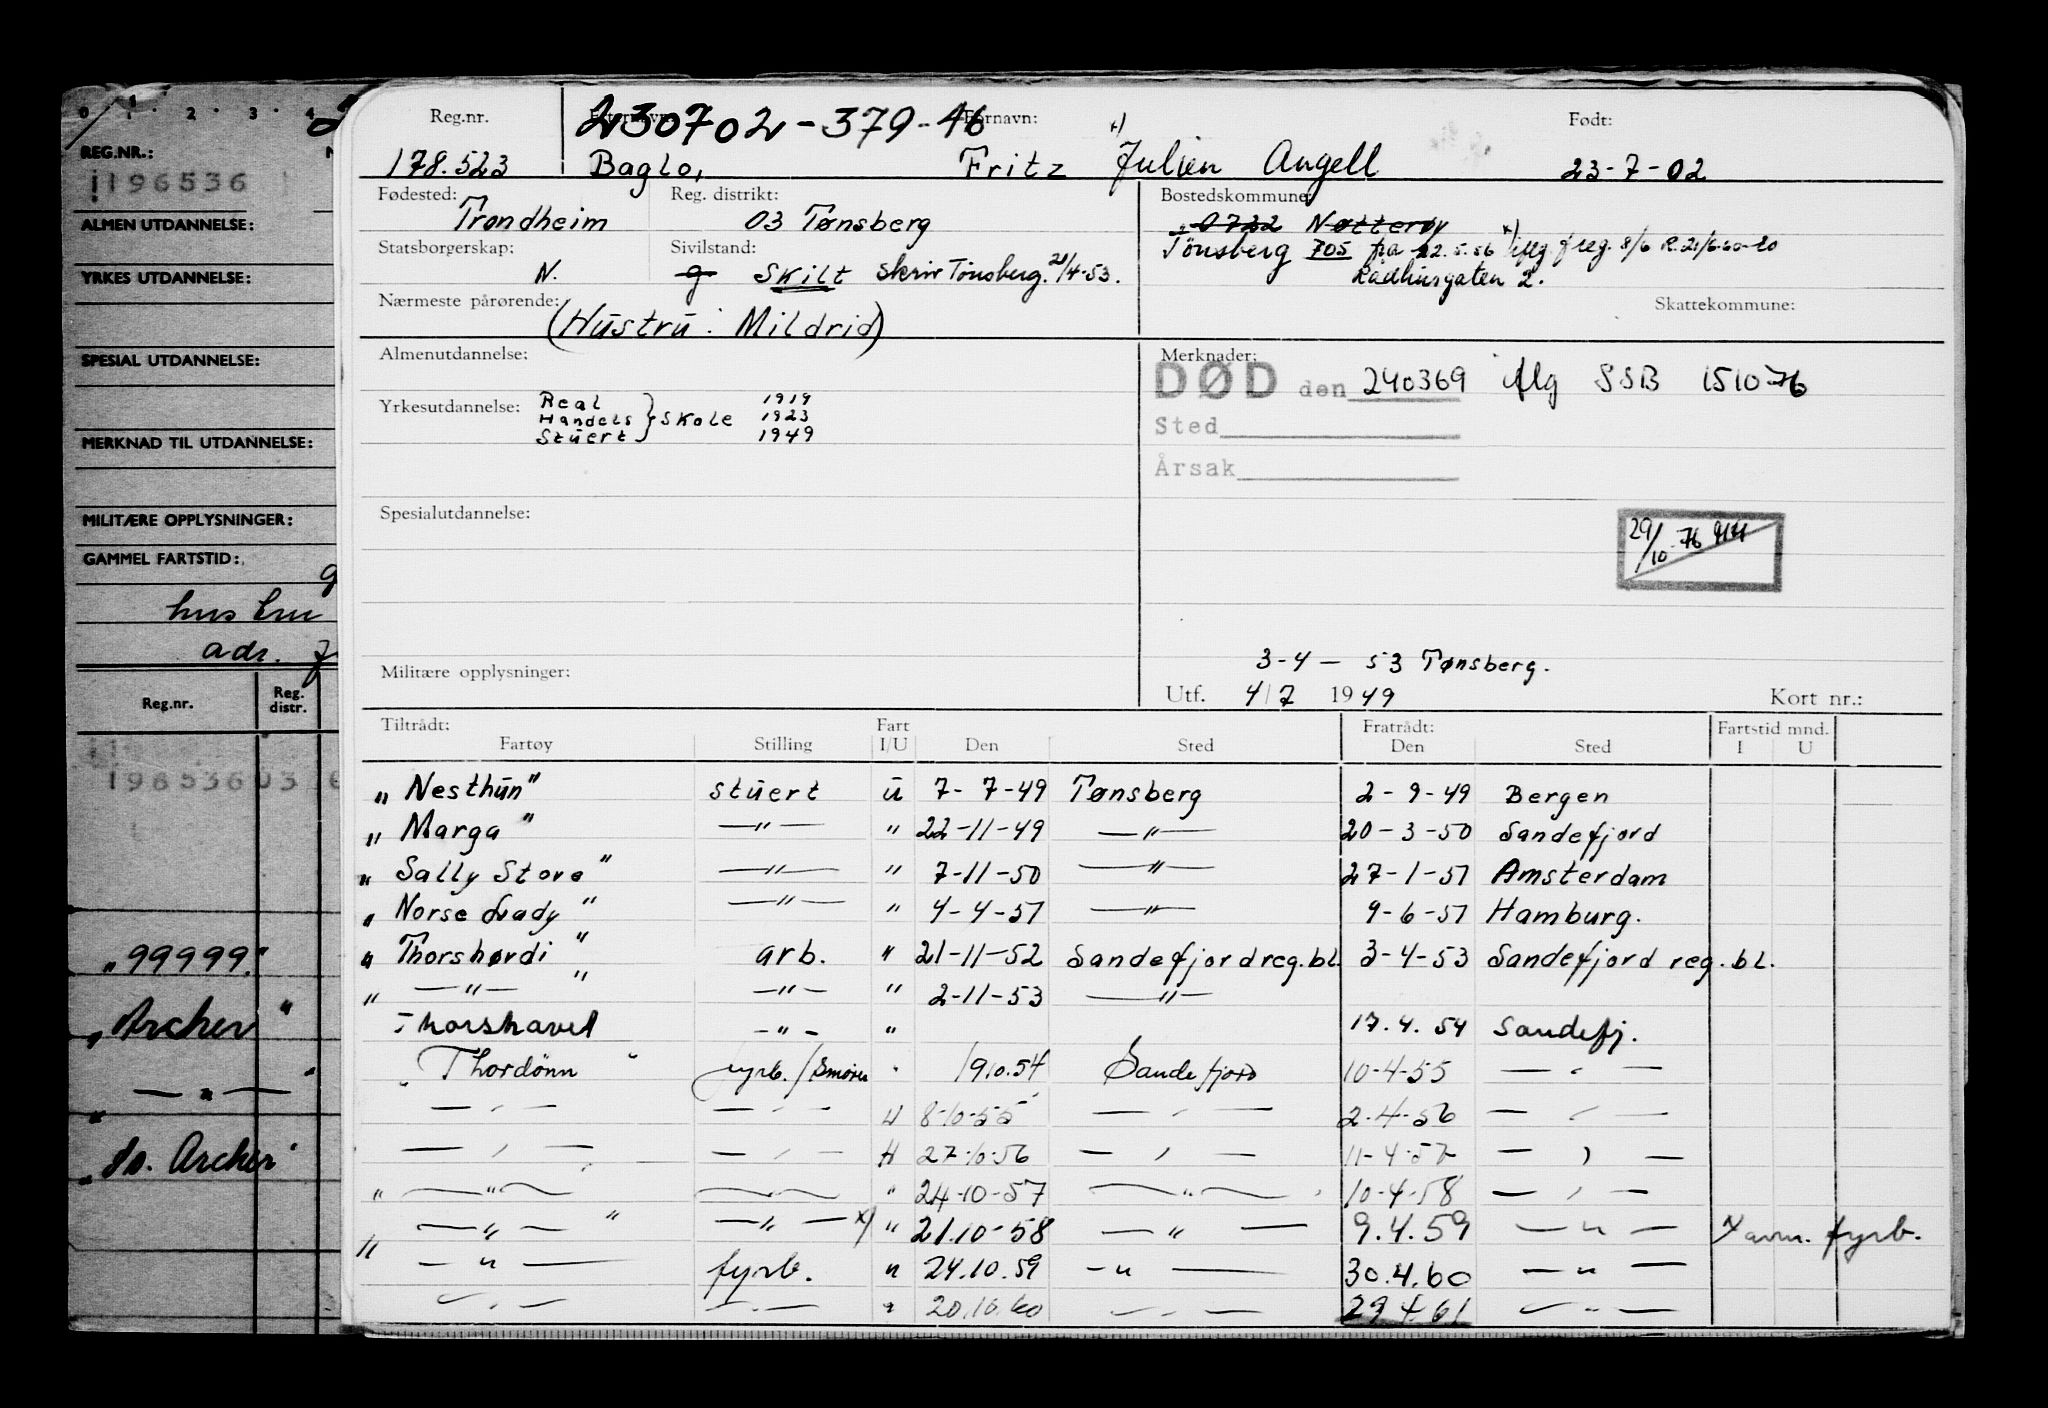 0 · 1 · 2 · 3 · 4
REG.NR.:
196536
ALMEN UTDANNELSE:
YRKES UTDANNELSE:
SPESIAL UTDANNELSE:
MERKNAD TIL UTDANNELSE:
MILITÆRE OPPLYSNINGER:
GAMMEL FARTSTID:
adr.
Reg.nr. Reg. distr.
19653603
„ 99999."
„ Archer "
„ — " — "
„ Archer "
Reg.nr. 230702-379-46 Fornavn: Født:
178.523 Baglo, Fritz x) Julien Angell 23-7-02
Fødested: Reg. distrikt: Bostedskommune:
Trondheim 03 Tønsberg 0722 Nøtterøy
Statsborgerskap: Sivilstand: Tönsberg 705 fra 22.5.56 x) iflg. freg. 8/6 R.21/6.60-20
N. g Skilt skriv Tönsberg. 21/4-53. Rådhusgaten 2.
Nærmeste pårørende: (Hustru: Mildrid) Skattekommune:
Almenutdannelse: Merknader:
DØD den 240369 iflg SSB 151076
Yrkesutdannelse: Real } Skole 1919
Handels 1923
Stuert 1949
Sted
Årsak
Spesialutdannelse:
29/10-76
3-4-53 Tønsberg.
Militære opplysninger: Utf. 4/7 1949 Kort nr.:
Tiltrådt: Fart Fratrådt: Fartstid mnd.
Fartøy Stilling I/U Den Sted Den Sted I U
„ Nesthun" stuert u 7-7-49 Tønsberg 2-9-49 Bergen
„ Marga" — " — " 22-11-49 — " — 20-3-50 Sandefjord
„ Sally Stove" — " — " 7-11-50 — " — 27-1-51 Amsterdam
„ Norse Lady" — " — " 4-4-51 — " — 9-6-51 Hamburg.
„ Thorshørdi" arb. " 21-11-52 Sandefjord reg.bl. 3-4-53 Sandefjord reg.bl.
„ — " — " — " — " 2-11-53 — " —
Thorshavet — " — " 17.4.54 Sandefj.
„ Thordönn " fyrb./Smører " 19.10.54 Sandefjord 10-4-55 — " —
— " — — " — U 8-10-55 — " — 2-4-56 — " —
— " — — " — 27-10-56 — " — 11-4-57 — " —
„ — " — — " — " 24-10-57 — " — 10-4-58 — " —
— " — " — " — x) " 21.10-58 — " — 9.4.59 — " — x) avm. fyrb.
„ — " — fyrb. " 24.10.59 — " — 30.4.60 — " —
— " — — " — " 20.10.60 — " — 29.4.61 — " —